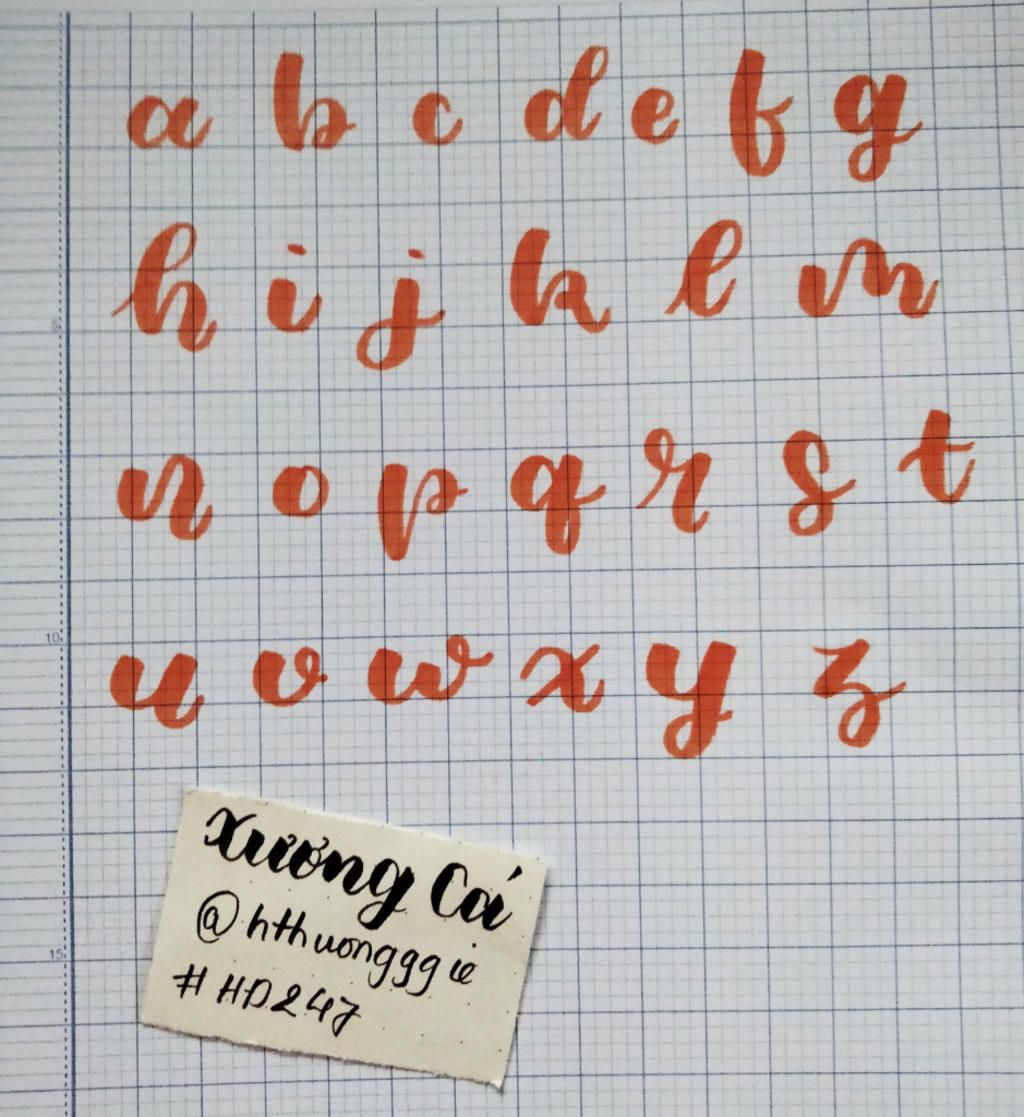 a b c d e f g
h i j k l m
n o p q r s t
u v w x y z
Xương Cá
@hthuongggie
#HD247
5
10
15